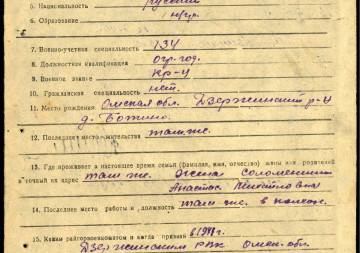 5. Национальность русский
6. Образование н/гр.
7. Военно-учетная специальность 134
8. Должностная квалификация огр. год.
9. Военное звание кр-ц
10. Гражданская специальность нет.
11. Место рождения Омская обл. Дзержинский р-н
д.
12. Последнее место жительства там же.
13. Где проживает в настоящее время семья (фамилия, имя, отчество) жены или родителей
точный их адрес там же. Жена
14. Последнее место работы и должность там же. в колхозе.
15. Каким райгорвоенкоматом и когда призван
Дзержинским РВК Омск. обл.